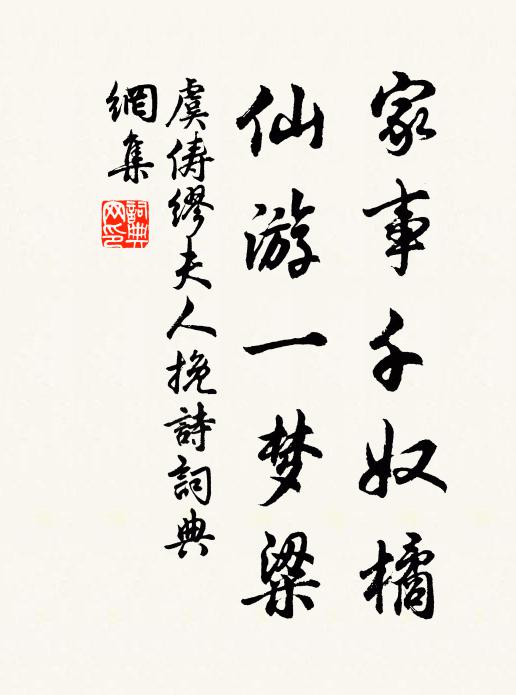 家事千奴橘
仙游一梦粱
虞儔繆夫人挽詩詞典
網集
詞典
网印